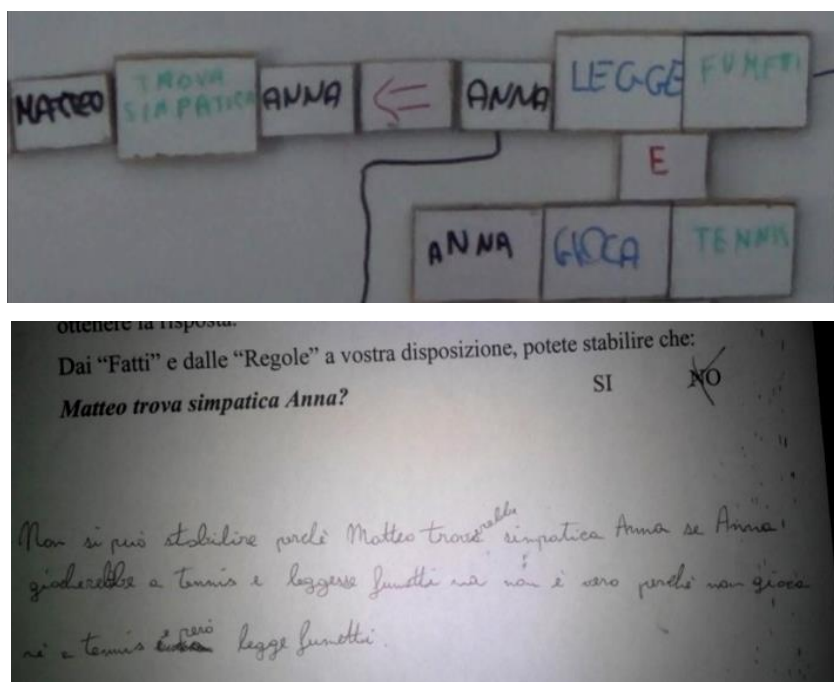 MATTEO TROVA SIMPATICA ANNA ⇐ ANNA LEGGE FUMETTI
E
ANNA GIOCA TENNIS
ottenere la risposta.
Dai “Fatti” e dalle “Regole” a vostra disposizione, potete stabilire che:
Matteo trova simpatica Anna? SI NO
Non si può stabilire perchè Matteo troverebbe simpatica Anna se Anna
giocherebbe a tennis e leggesse fumetti ma non è vero perchè non gioca
nè a tennis e però legge fumetti.